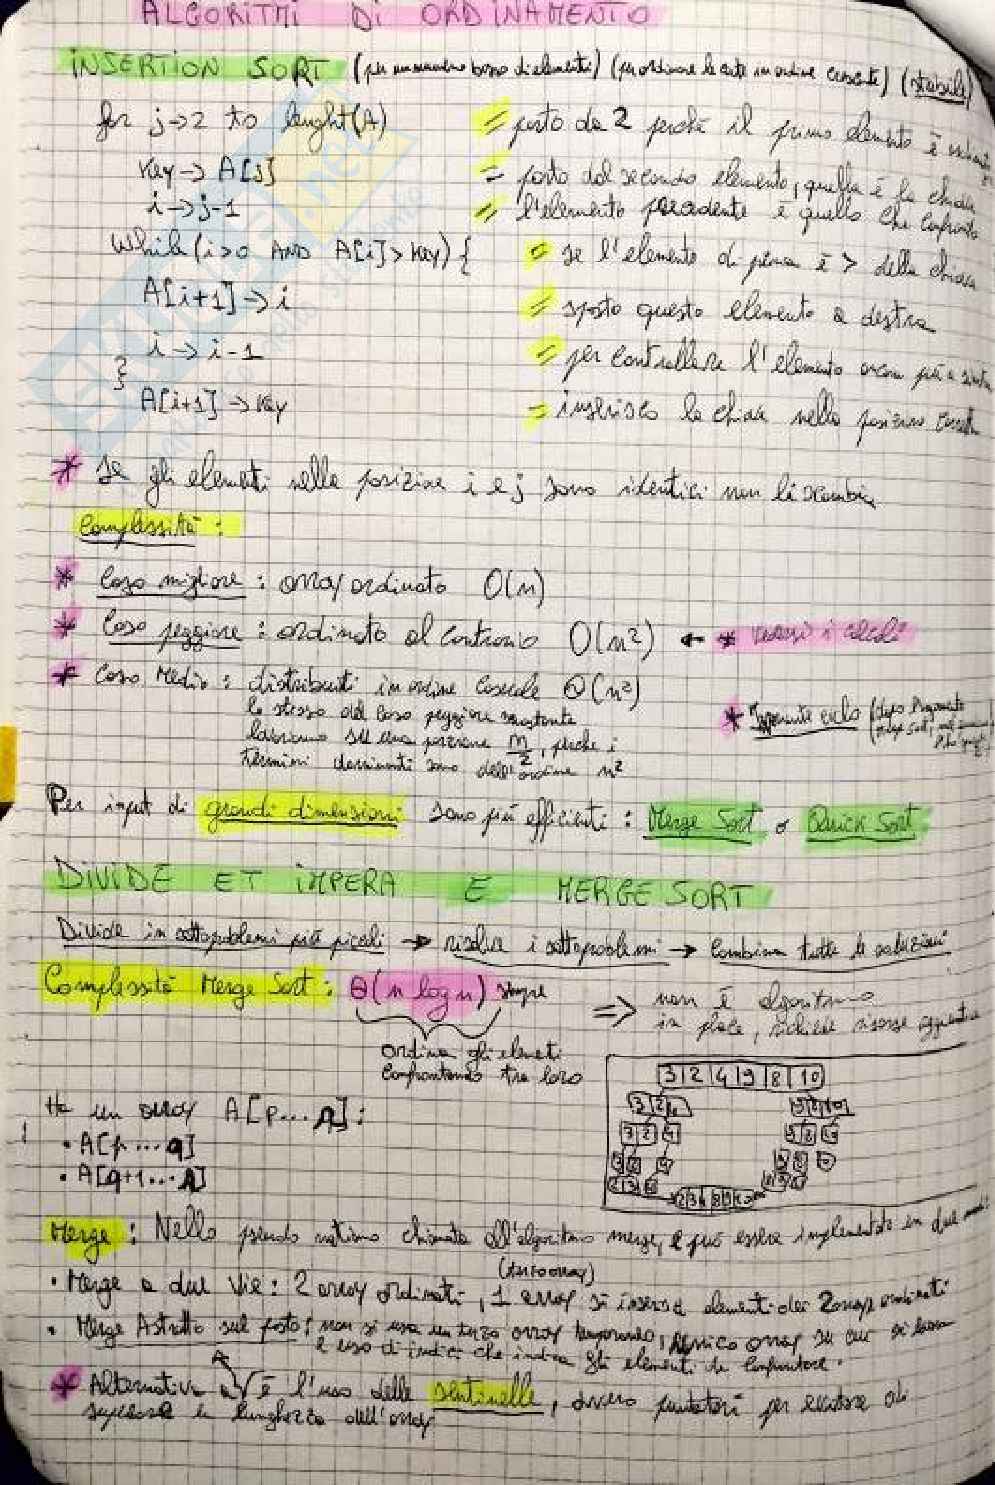 ALGORITMI DI ORDINAMENTO
INSERTION SORT (per un numero basso di elementi) (per ordinare le carte in ordine crescente) (stabile)
for j → 2 to lenght(A) // parto da 2 perché il primo elemento è
Key → A[j] // parto dal secondo elemento, quella è la chiave
i → j-1 // l'elemento precedente è quello che confronto
While (i>0 AND A[i] > Key) { // se l'elemento di prima è > della chiave
A[i+1] → i // sposto questo elemento a destra
i → i-1 // per controllare l'elemento ancora più a sinistra
}
A[i+1] → Key // inserisco la chiave nella posizione corretta
* Se gli elementi nella posizione i e j sono identici non li scambia
Complessità:
* Caso migliore: array ordinato O(n)
* Caso peggiore: ordinato al contrario O(n²) ← * vedasi i calcoli
* Caso Medio: distribuiti in ordine casuale Θ(n²)
lo stesso del caso peggiore nonostante
lavoriamo su una porzione n/2, perché i
termini dominanti sono dell'ordine n²
* Invariante ciclo (dopo Argomento
Merge Sort,
Per input di grandi dimensioni sono più efficienti: Merge Sort o Quick Sort
DIVIDE ET IMPERA E MERGE SORT
Divide in sottoproblemi più piccoli → risolve i sottoproblemi → Combina tutte le soluzioni
Complessità Merge Sort: Θ(n log n) sempre ⇒ non è algoritmo
in place, richiede risorse aggiuntive
ordina gli elementi
confrontando tra loro
3|2|4|9|8|10
Ha un array A[p...r]:
• A[p...q]
• A[q+1...r]
Merge: Nello pseudo nativo chiamata all'algoritmo merge, e può essere implementato in due modi:
• Merge a due vie: 2 array ordinati, 1 array (terzo array) si inserisce elementi dei 2 array ordinati
• Merge Astratto sul posto: non si usa un terzo array temporaneo, l'unico array su cui si lavora
è uso di indici che indica gli elementi da confrontare.
* Alternativa è l'uso delle sentinelle, ovvero puntatori per evitare di
superare la lunghezza dell'array